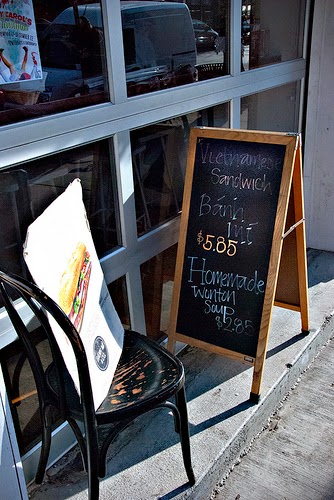 Vietnamese
Sandwich
Bánh
Mì
$5.85
Homemade
Wonton
Soup
$5.85